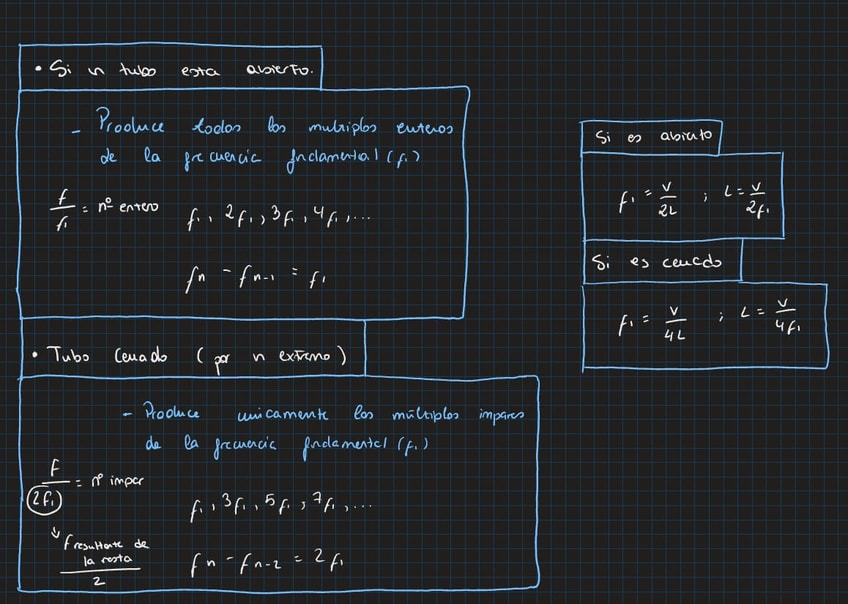 • Si un tubo esta abierto.
- Produce todos los multiplos enteros
de la frecuencia fundamental (f₁)
f/f₁ = nº entero
f₁, 2f₁, 3f₁, 4f₁, ...
fn - fn-1 = f₁
• Tubo Cerrado (por un extremo)
- Produce unicamente los múltiplos impares
de la frecuencia fundamental (f₁)
f/(2f₁) = nº impar
f₁, 3f₁, 5f₁, 7f₁, ...
↓ f resultante de
la resta
2
fn - fn-2 = 2f₁
Si es abierto
f₁ = v/2L ; L = v/2f₁
Si es cerrado
f₁ = v/4L ; L = v/4f₁